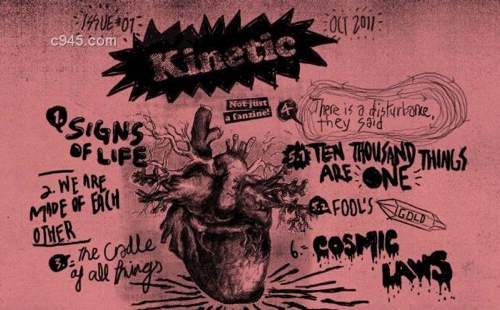 ISSUE #01
OCT 2011
c945.com
Kinetic
Not just
a fanzine!
1. SIGNS
OF LIFE
2. WE ARE
MADE OF EACH
OTHER
3. the cradle
of all things
4. There is a disturbance,
they said
TEN THOUSAND THINGS
ARE ONE
FOOL'S
GOLD
6. COSMIC
LAWS